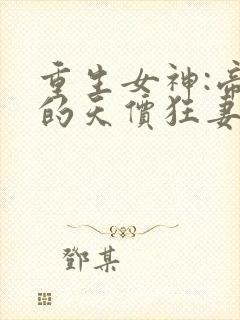 重生女神:帝
的天價狂妻
鄧某